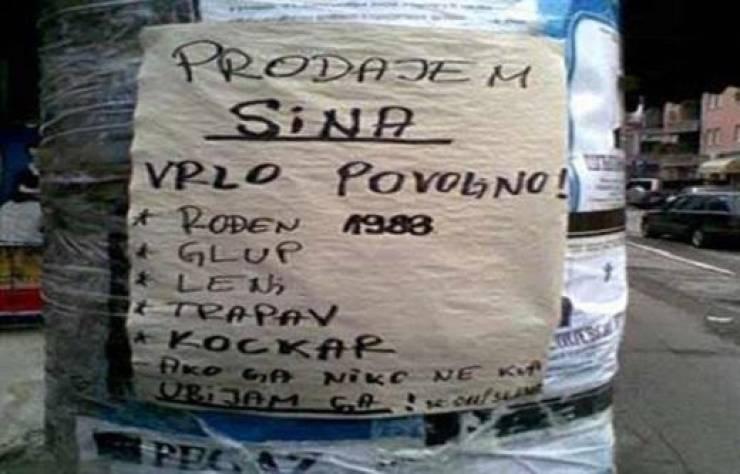 PRODAJEM
SINA
VRLO POVOLJNO!
* ROĐEN 1988
* GLUP
* LENJ
* TRAPAV
* KOCKAR
- AKO GA NIKO NE
UBIJAM GA!
PEGAZ